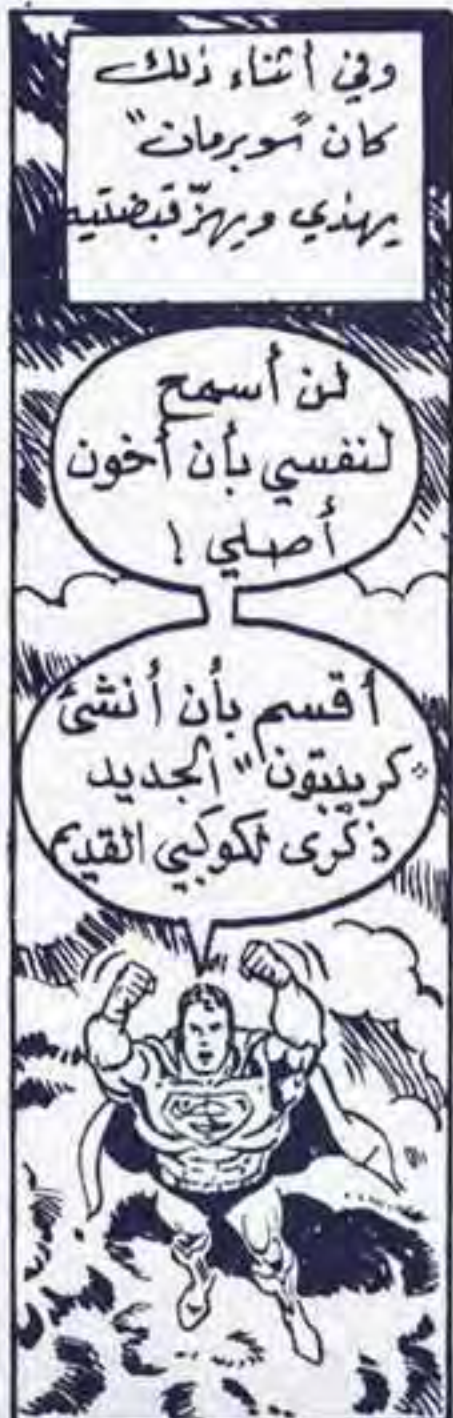 وفي أثناء ذلك
كان "سوبرمان"
يهذي ويهزّ قبضتيه
لن أسمح
لنفسي بأن أخون
أصلي !
أقسم بأن أنشئ
"كريبتون" الجديد
ذكرى لكوكبي القديم